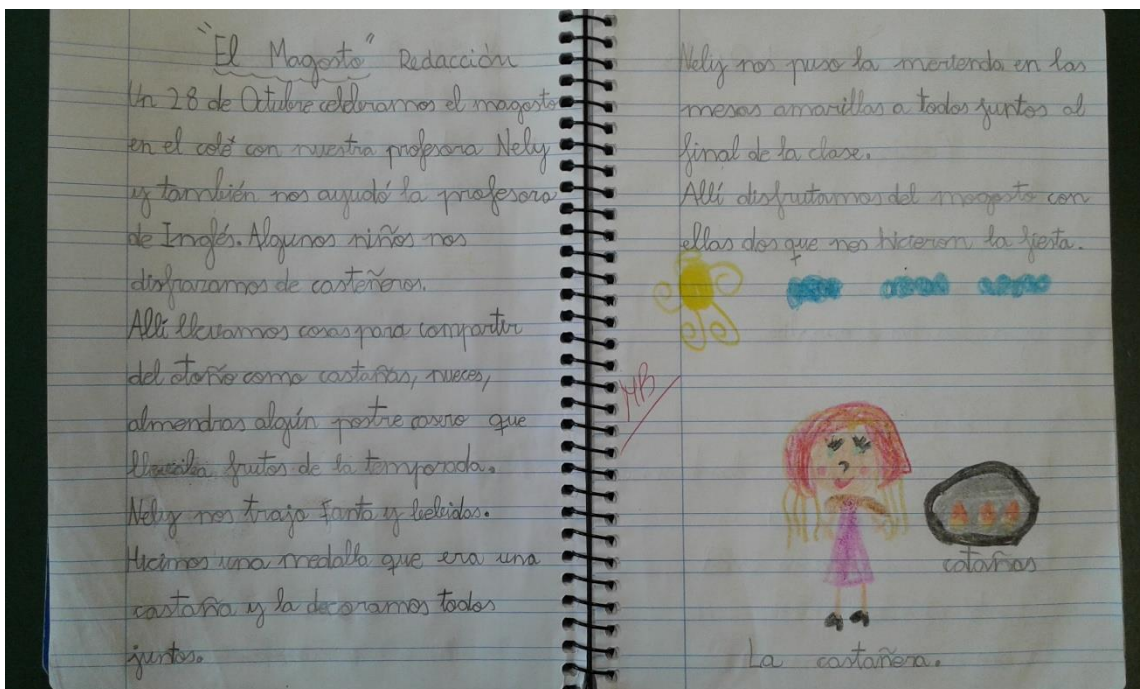 "El Magosto" Redacción
Un 28 de Octubre celebramos el magosto
en el cole con nuestra profesora Nely
y también nos ayudó la profesora
de Inglés. Algunos niños nos
disfrazamos de casteñeros.
Allí llevamos cosas para compartir
del otoño como castañas, nueces,
almendras algún postre casro que
llevaba frutos de la temporada.
Nely nos trajo Fanta y bebidas.
Hicimos una medalla que era una
castaña y la decoramos todos
juntos.
Nely nos puso la merienda en las
mesas amarillas a todos juntos al
final de la clase.
Allí disfrutamos del magosto con
ellas dos que nos hicieron la fiesta.
MB
catañas
La castañera.